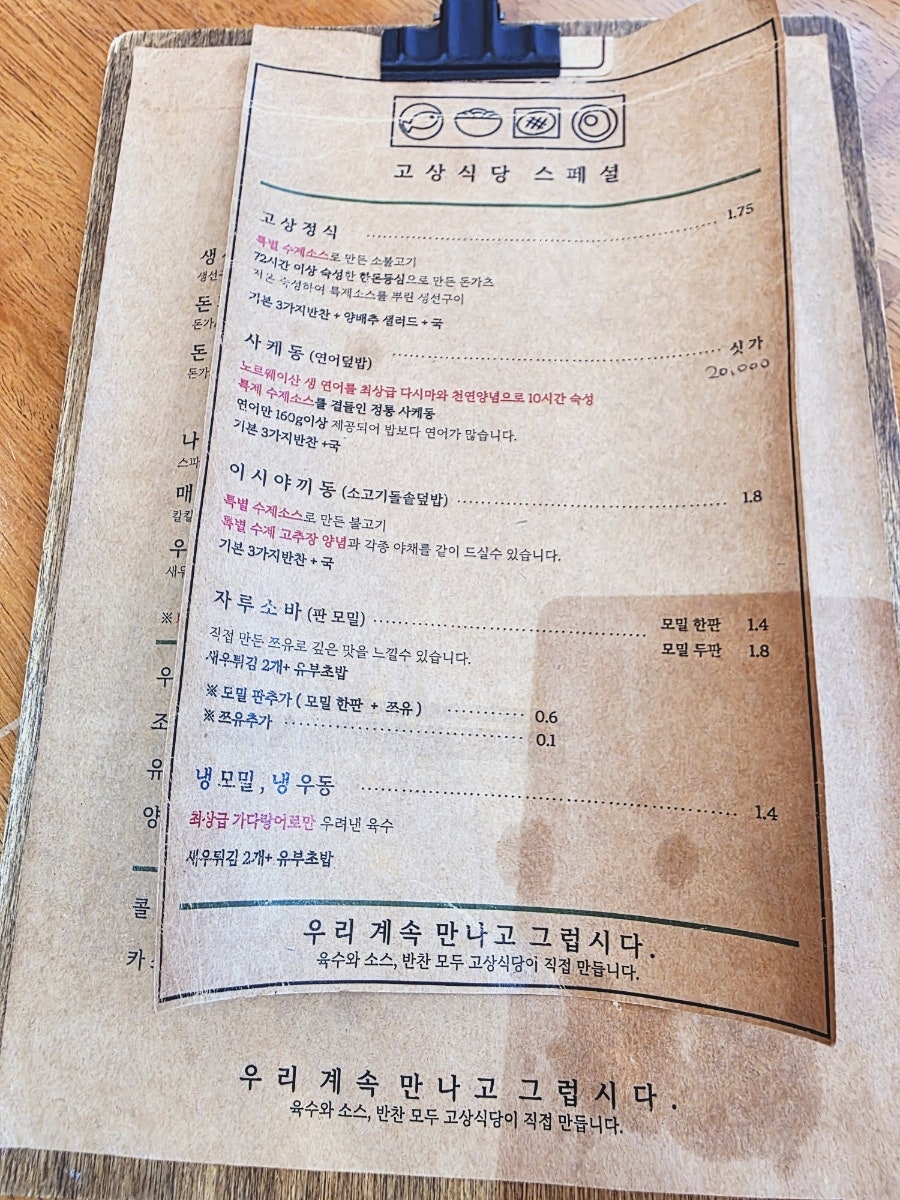 고상식당 스페셜
고상정식 1.75
특별 수제소스로 만든 소불고기
72시간 이상 숙성한 한돈등심으로 만든 돈가츠
저온 숙성하여 특제소스를 뿌린 생선구이
기본 3가지반찬 + 양배추 샐러드 + 국
사케동 (연어덮밥) 싯가
20,000
노르웨이산 생 연어를 최상급 다시마와 천연양념으로 10시간 숙성
특제 수제소스를 곁들인 정통 사케동
연어만 160g이상 제공되어 밥보다 연어가 많습니다.
기본 3가지반찬 +국
이시야끼동 (소고기돌솥덮밥) 1.8
특별 수제소스로 만든 불고기
특별 수제 고추장 양념과 각종 야채를 같이 드실수 있습니다.
기본 3가지반찬 + 국
자루소바 (판 모밀) 모밀 한판 1.4
모밀 두판 1.8
직접 만든 쯔유로 깊은 맛을 느낄수 있습니다.
새우튀김 2개+ 유부초밥
※ 모밀 판추가 ( 모밀 한판 + 쯔유 ) 0.6
※ 쯔유추가 0.1
냉모밀, 냉우동 1.4
최상급 가다랑어로만 우려낸 육수
새우튀김 2개+ 유부초밥
우리 계속 만나고 그럽시다.
육수와 소스, 반찬 모두 고상식당이 직접 만듭니다.
우리 계속 만나고 그럽시다.
육수와 소스, 반찬 모두 고상식당이 직접 만듭니다.